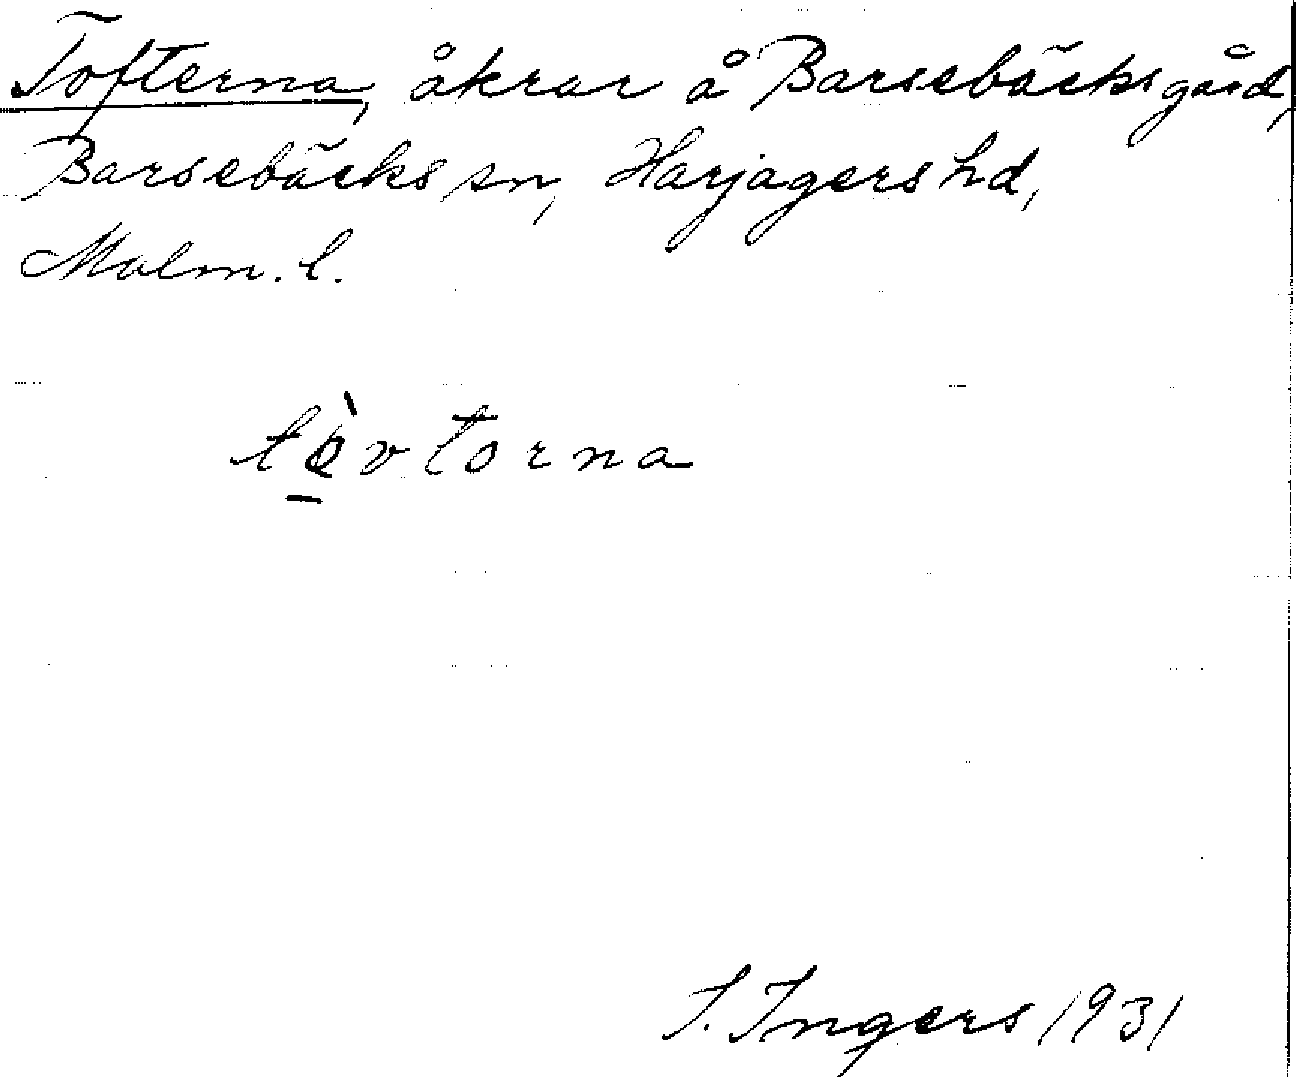 Tofterna, åkrar å Barsebäcksgård,
Barsebäcks sn, Harjagers hd,
Malm. l.
tòvtorna
I. Ingers 1931